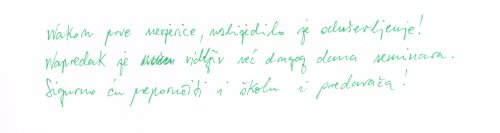 Nakon prve nevjerice, uslijedilo je oduševljenje!
Napredak je vidljiv već drugog dana seminara.
Sigurno ću preporučiti i školu i predavača!